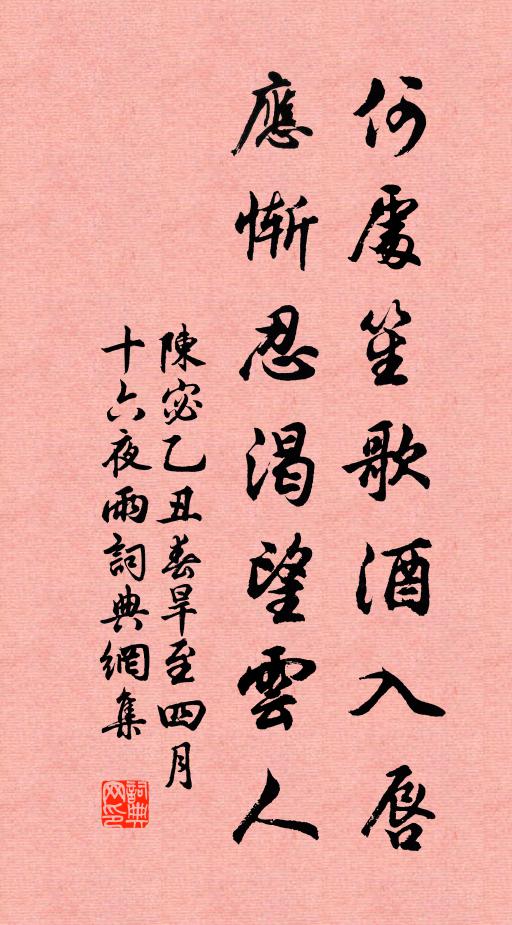 何處笙歌酒入唇
應慚忍渴望雲人
陳宓乙丑春旱至四月
十六夜雨詞典網集
詞典網印